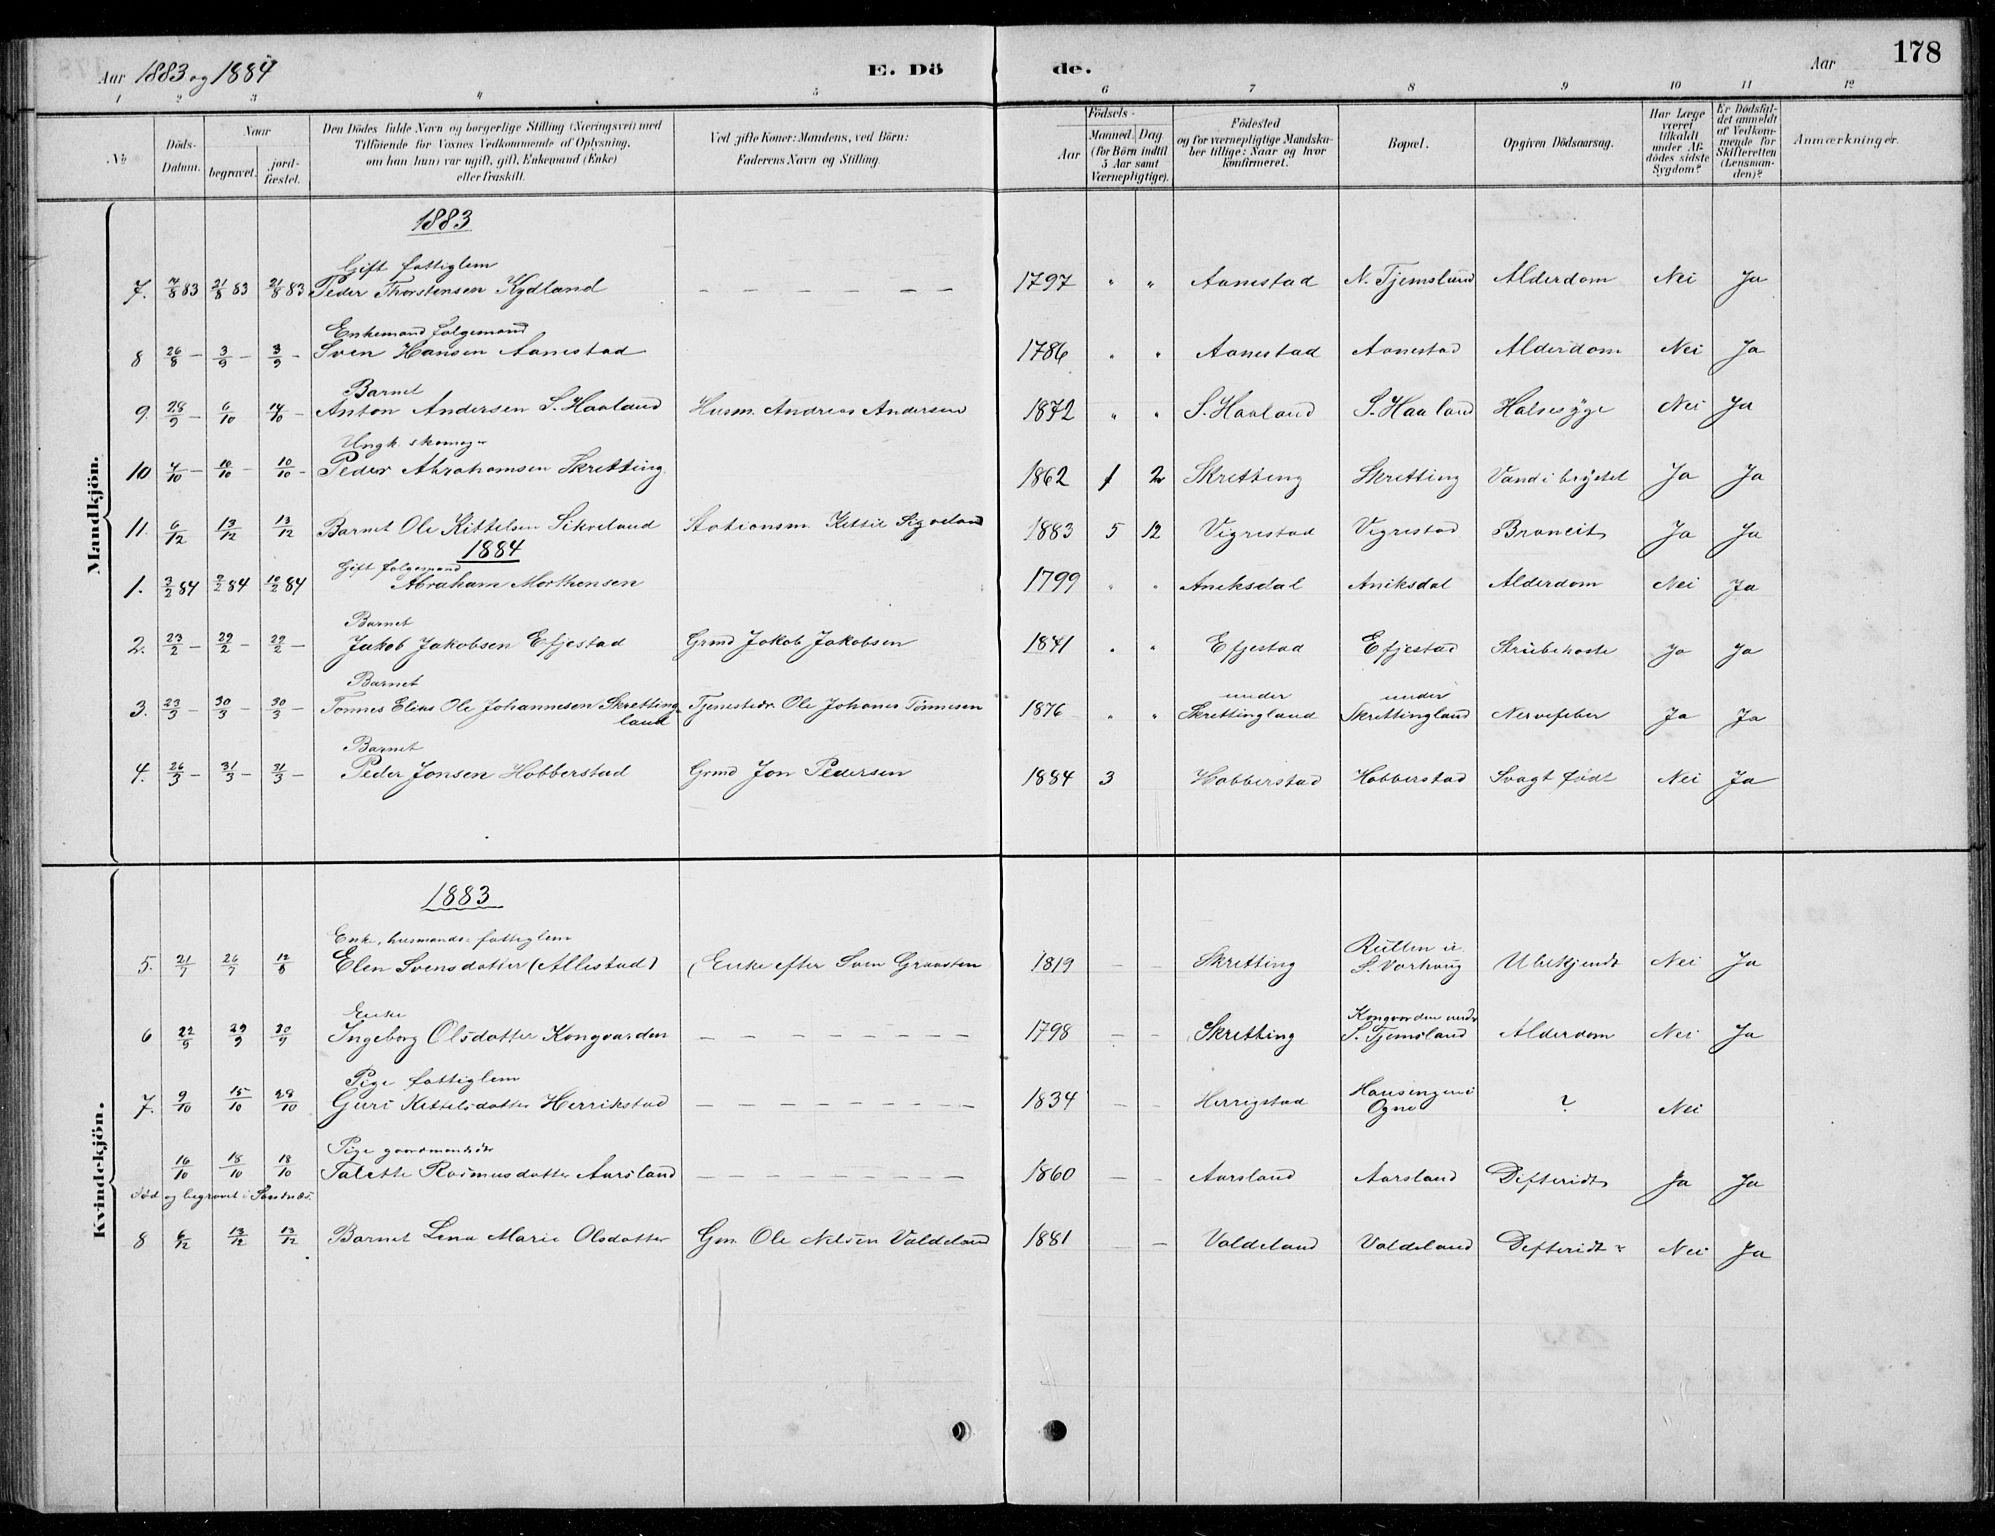 Aar 1883 og 1884
E. Dö
de.
Aar
178
1 2 3 4 5 6 7 8 9 10 11 12
No
Döds-Datum.
Naar
begravet.
jordfæstet.
Den Dödes fulde Navn og borgerlige Stilling (Næringsvei) med
Tilföiende for Voxnes Vedkommende af Oplysning,
om han (hun) var ugift, gift, Enkemand (Enke)
eller fraskilt.
Ved gifte Koner: Mandens, ved Börn:
Faderens Navn og Stilling.
Födsels-
Aar
Maaned. Dag.
(for Börn indtil
5 Aar samt
Værnepligtige).
Födested
og for værnepligtige Mandska-
ber tillige: Naar og hvor
konfirmeret.
Bopæl.
Opgiven Dödsaarsag.
Har Læge
været
tilkaldt
under Af-
dödes sidste
Sygdom?
Er Dödsfal-
det anmeldt
af Vedkom-
mende for
Skifteretten
(Lensman-
den)?
Anmærkninger.
Mandkjön.
1883
Gift fattiglem
7. 7/8 83 21/8 83 21/8 83 Peder Thorstensen Kydland — — — — — — 1797 " " Aanestad N. Tjemsland Alderdom Nei Ja
Enkemand folgemand
8 26/8 — 3/9 — 3/9 — Sven Hansen Aanestad 1786 " " Aanestad Aanestad Alderdom Nei Ja
Barnet
9. 28/9 — 6/10 14/10 — Anton Andersen S. Haaland Husm. Andreas Andersen 1872 " " S. Haaland S. Haaland Halssyge Nei Ja
Ungk.
10 4/10 — 10/10 — 10/10 — Peder Abrahamsen Skretting 1862 1 2 Skretting Skretting Vand i brystet Ja Ja
11. 6/12 13/12 13/12 Barnet Ole Kittelsen Sikveland Stationsm. Kittil Sigveland 1883 5 12 Vigrestad Vigrestad Bronkit Ja Ja
1884
Gift folgemand
1. 3/2 84 9/2 84 10/2 84 Abraham Morthensen 1799 " " Aniksdal Aniksdal Alderdom Nei Ja
Barnet
2. 23/2 — 29/2 — 29/2 — Jakob Jakobsen Efjestad Grmd Jakob Jakobsen 1871 " " Efjestad Efjestad Strubehoste Ja Ja
Barnet under under
3. 23/3 — 30/3 — 30/3 — Tonnes Elias Ole Johannesen Skretting- Tjenestedr. Ole Johanes Tönnesen 1876 " " Skrettingland Skrettingland Nervefeber Ja Ja
land
Barnet
4. 26/3 — 31/3 — 31/3 — Peder Jonsen Hobberstad Grmd Jon Pedersen 1884 3 Hobberstad Hobberstad Svagt födt Nei Ja
Kvindekjön.
1883
Enke, husmands: fattiglem Rutlen u.
5. 21/7 26/7 12/8 Elen Svensdatter (Allestad) (Enke efter Sven Graasten 1819 — — Skretting S. Varhaug Ubekjendt Nei Ja
Enke Kongvarden under
6 22/9 29/9 30/9 Ingeborg Olsdatter Kongvarden — — — — — — — 1798 — — Skretting S. Tjemsland Alderdom Nei Ja
Pige fattiglem
7. 9/10 15/10 28/10 Guri Kittelsdatter Herrikstad — — — — — — — 1834 — — Herrigstad Hausingen i ? Nei
Ogne
Pige
16/10 18/10 18/10 Talette Rasmusdatter Aarsland — — — — — — — 1860 — — Aarsland Aarsland Difteridt Ja Ja
Död og begravet i Sandnæs.
8 6/12 13/12 13/12 Barnet Lena Marie Olsdatter Gm. Ole Nilsen Valdeland 1881 — — Valdeland Valdeland Difteridt Nei Ja